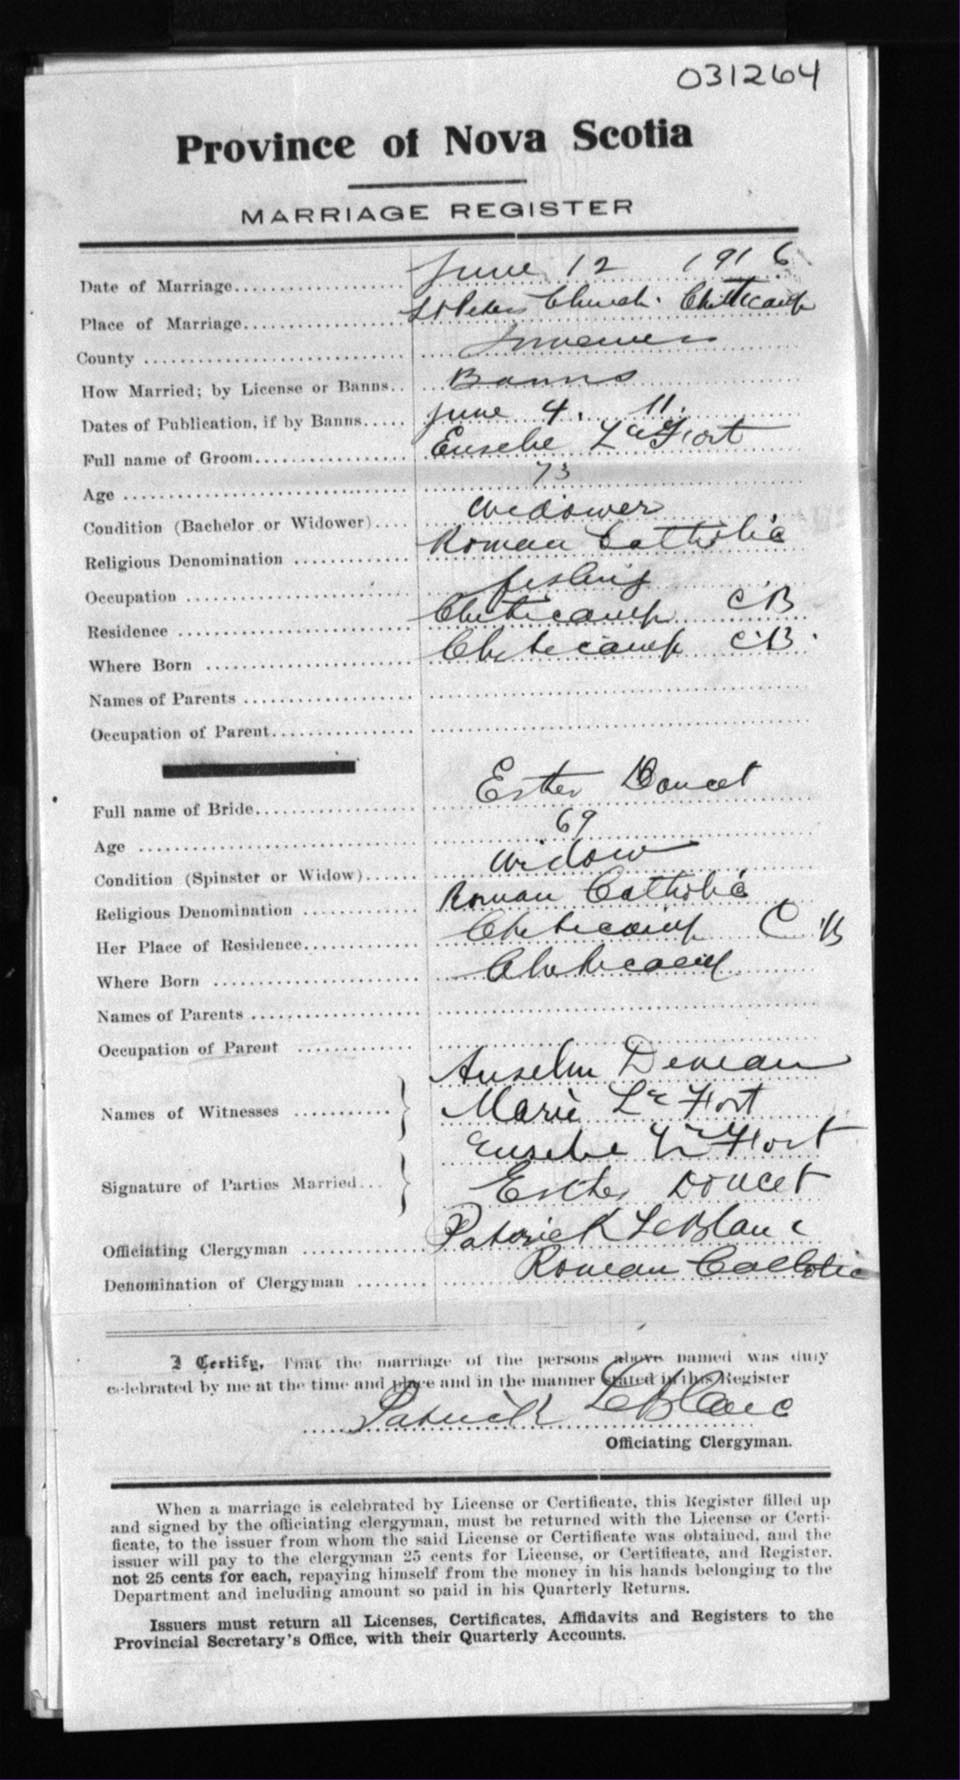 031264
Province of Nova Scotia
MARRIAGE REGISTER
Date of Marriage June 12 1916
Place of Marriage St Peters Church. Cheticamp
County Inverness
How Married; by License or Banns Banns
Dates of Publication, if by Banns June 4. 11.
Full name of Groom Eusebe LeFort
Age 73
Condition (Bachelor or Widower) Widower
Religious Denomination Roman Catholic
Occupation fishing
Residence Cheticamp C.B
Where Born Cheticamp C.B.
Names of Parents
Occupation of Parent
Full name of Bride Esther Doucet
Age 69
Condition (Spinster or Widow) Widow
Religious Denomination Roman Catholic
Her Place of Residence Cheticamp C.B
Where Born Cheticamp
Names of Parents
Occupation of Parent
Anselm Deveau
Names of Witnesses Marie LeFort
Eusebe LeFort
Signature of Parties Married Esther Doucet
Officiating Clergyman Patrick LeBlanc
Denomination of Clergyman Roman Catholic
I Certify, That the marriage of the persons above named was duly
celebrated by me at the time and place and in the manner stated in this Register
Patrick LeBlanc
Officiating Clergyman.
When a marriage is celebrated by License or Certificate, this Register filled up
and signed by the officiating clergyman, must be returned with the License or Certi-
ficate, to the issuer from whom the said License or Certificate was obtained, and the
issuer will pay to the clergyman 25 cents for License, or Certificate, and Register,
not 25 cents for each, repaying himself from the money in his hands belonging to the
Department and including amount so paid in his Quarterly Returns.
Issuers must return all Licenses, Certificates, Affidavits and Registers to the
Provincial Secretary's Office, with their Quarterly Accounts.